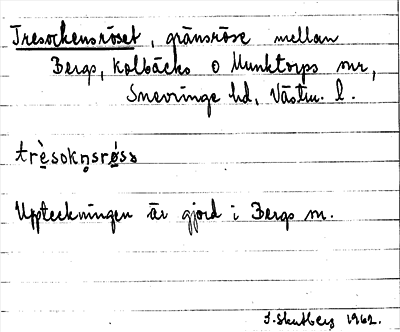 Tresockensröset, gränsröse mellan
Bergs, Kolbäcks o Munktorps snr,
Snevringe hd, Västm. l.
trèsokn̥srø̀sə
Uppteckningen är gjord i Bergs sn.
J. Skutberg 1962.